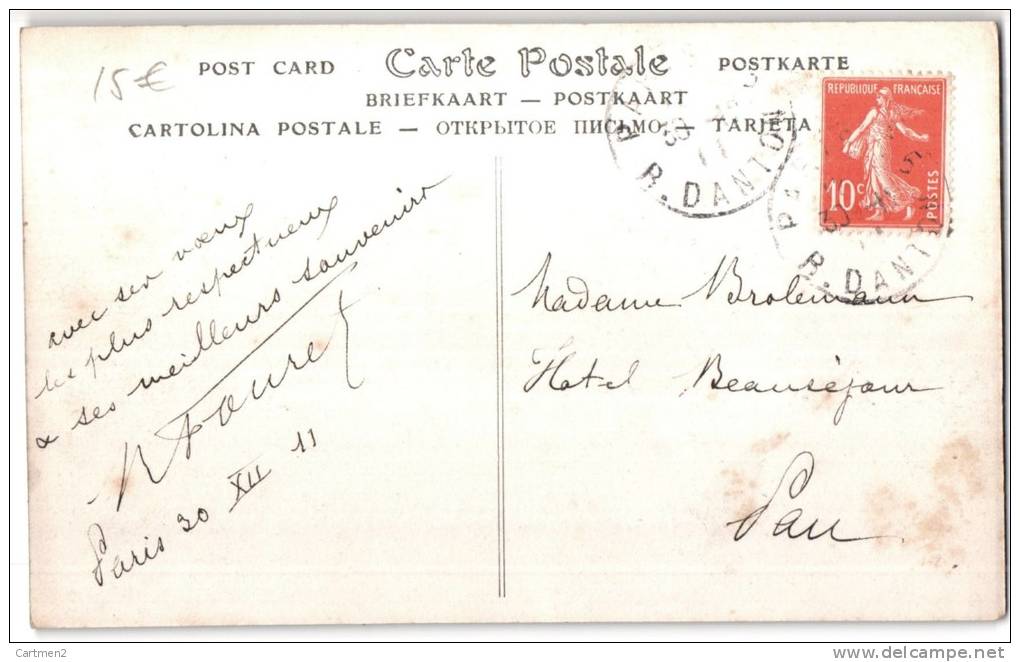 15 €
POST CARD Carte Postale POSTKARTE
BRIEFKAART — POSTKAART
CARTOLINA POSTALE — ОТКРЫТОЕ ПИСЬМО — TARJETA
REPUBLIQUE FRANÇAISE
10c
POSTES
R. DANTON
R. DANTON
avec ses vœux
les plus respectueux
& ses meilleurs souvenirs
Paris 30 XII 11
Madame Brolemann
Hotel Beauséjour
Pau
Cartmen2
www.delcampe.net